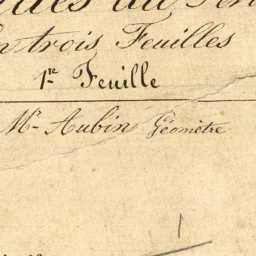 en trois Feuilles
1re Feuille
Mr Aubin Géomètre
1